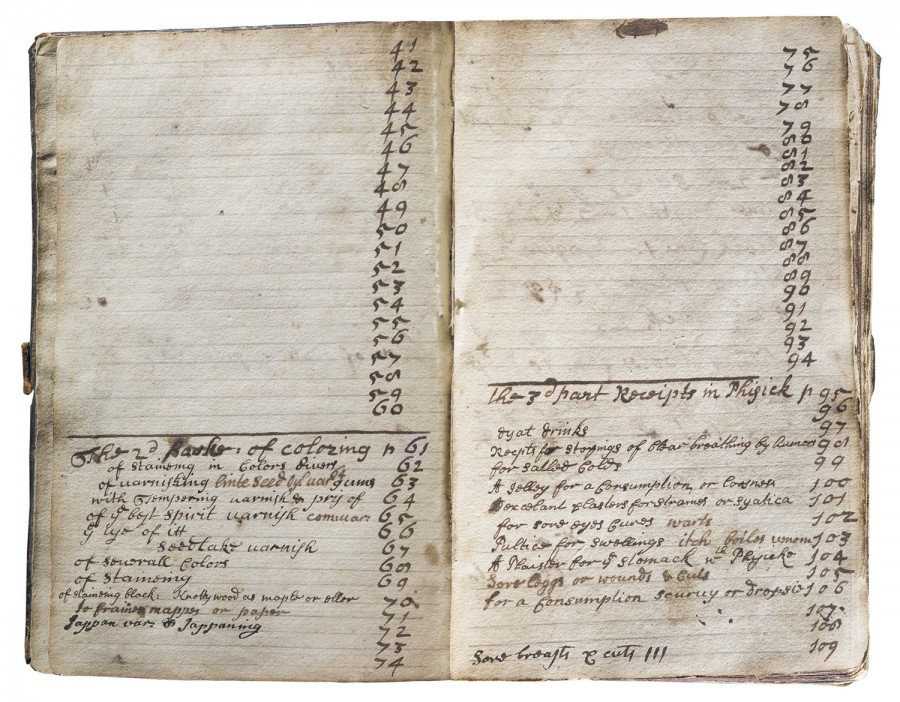 41
42
43
44
45
46
47
48
49
50
51
52
53
54
55
56
57
58
59
60
The 2d of coloring p 61
of stameing in Colors divers 62
of varnishing linte seed oyl varsh gums 63
with Tempering varnish & prys of 64
of ye best Spirit varnish 65
ye use of itt 66
Seedlake varnish 67
of Severall Colors 68
of Stameing 69
of stameing black: Knotty wood as maple or eller 70
to frame mappes or paper 71
Jappan var: & Jappaning 72
73
74
75
76
77
78
79
80
81
82
83
84
85
86
87
88
89
90
91
92
93
94
the 3d part Receipts in Phisick p 95
96
dyat drinks 97
for stopings of breathing by 98
for Colds 99
A Jelley for a Consumption or 100
plasters for straines or syatica 101
for sore eyes Cures warts 102
Pultice for swellings itch boiles venom 103
A Plaister for ye stomack wth Phisicke 104
Sore leggs or wounds & Cuts 105
for a Consumption scurvy or dropsie 106
107
108
109
Sore breasts & cuts 111